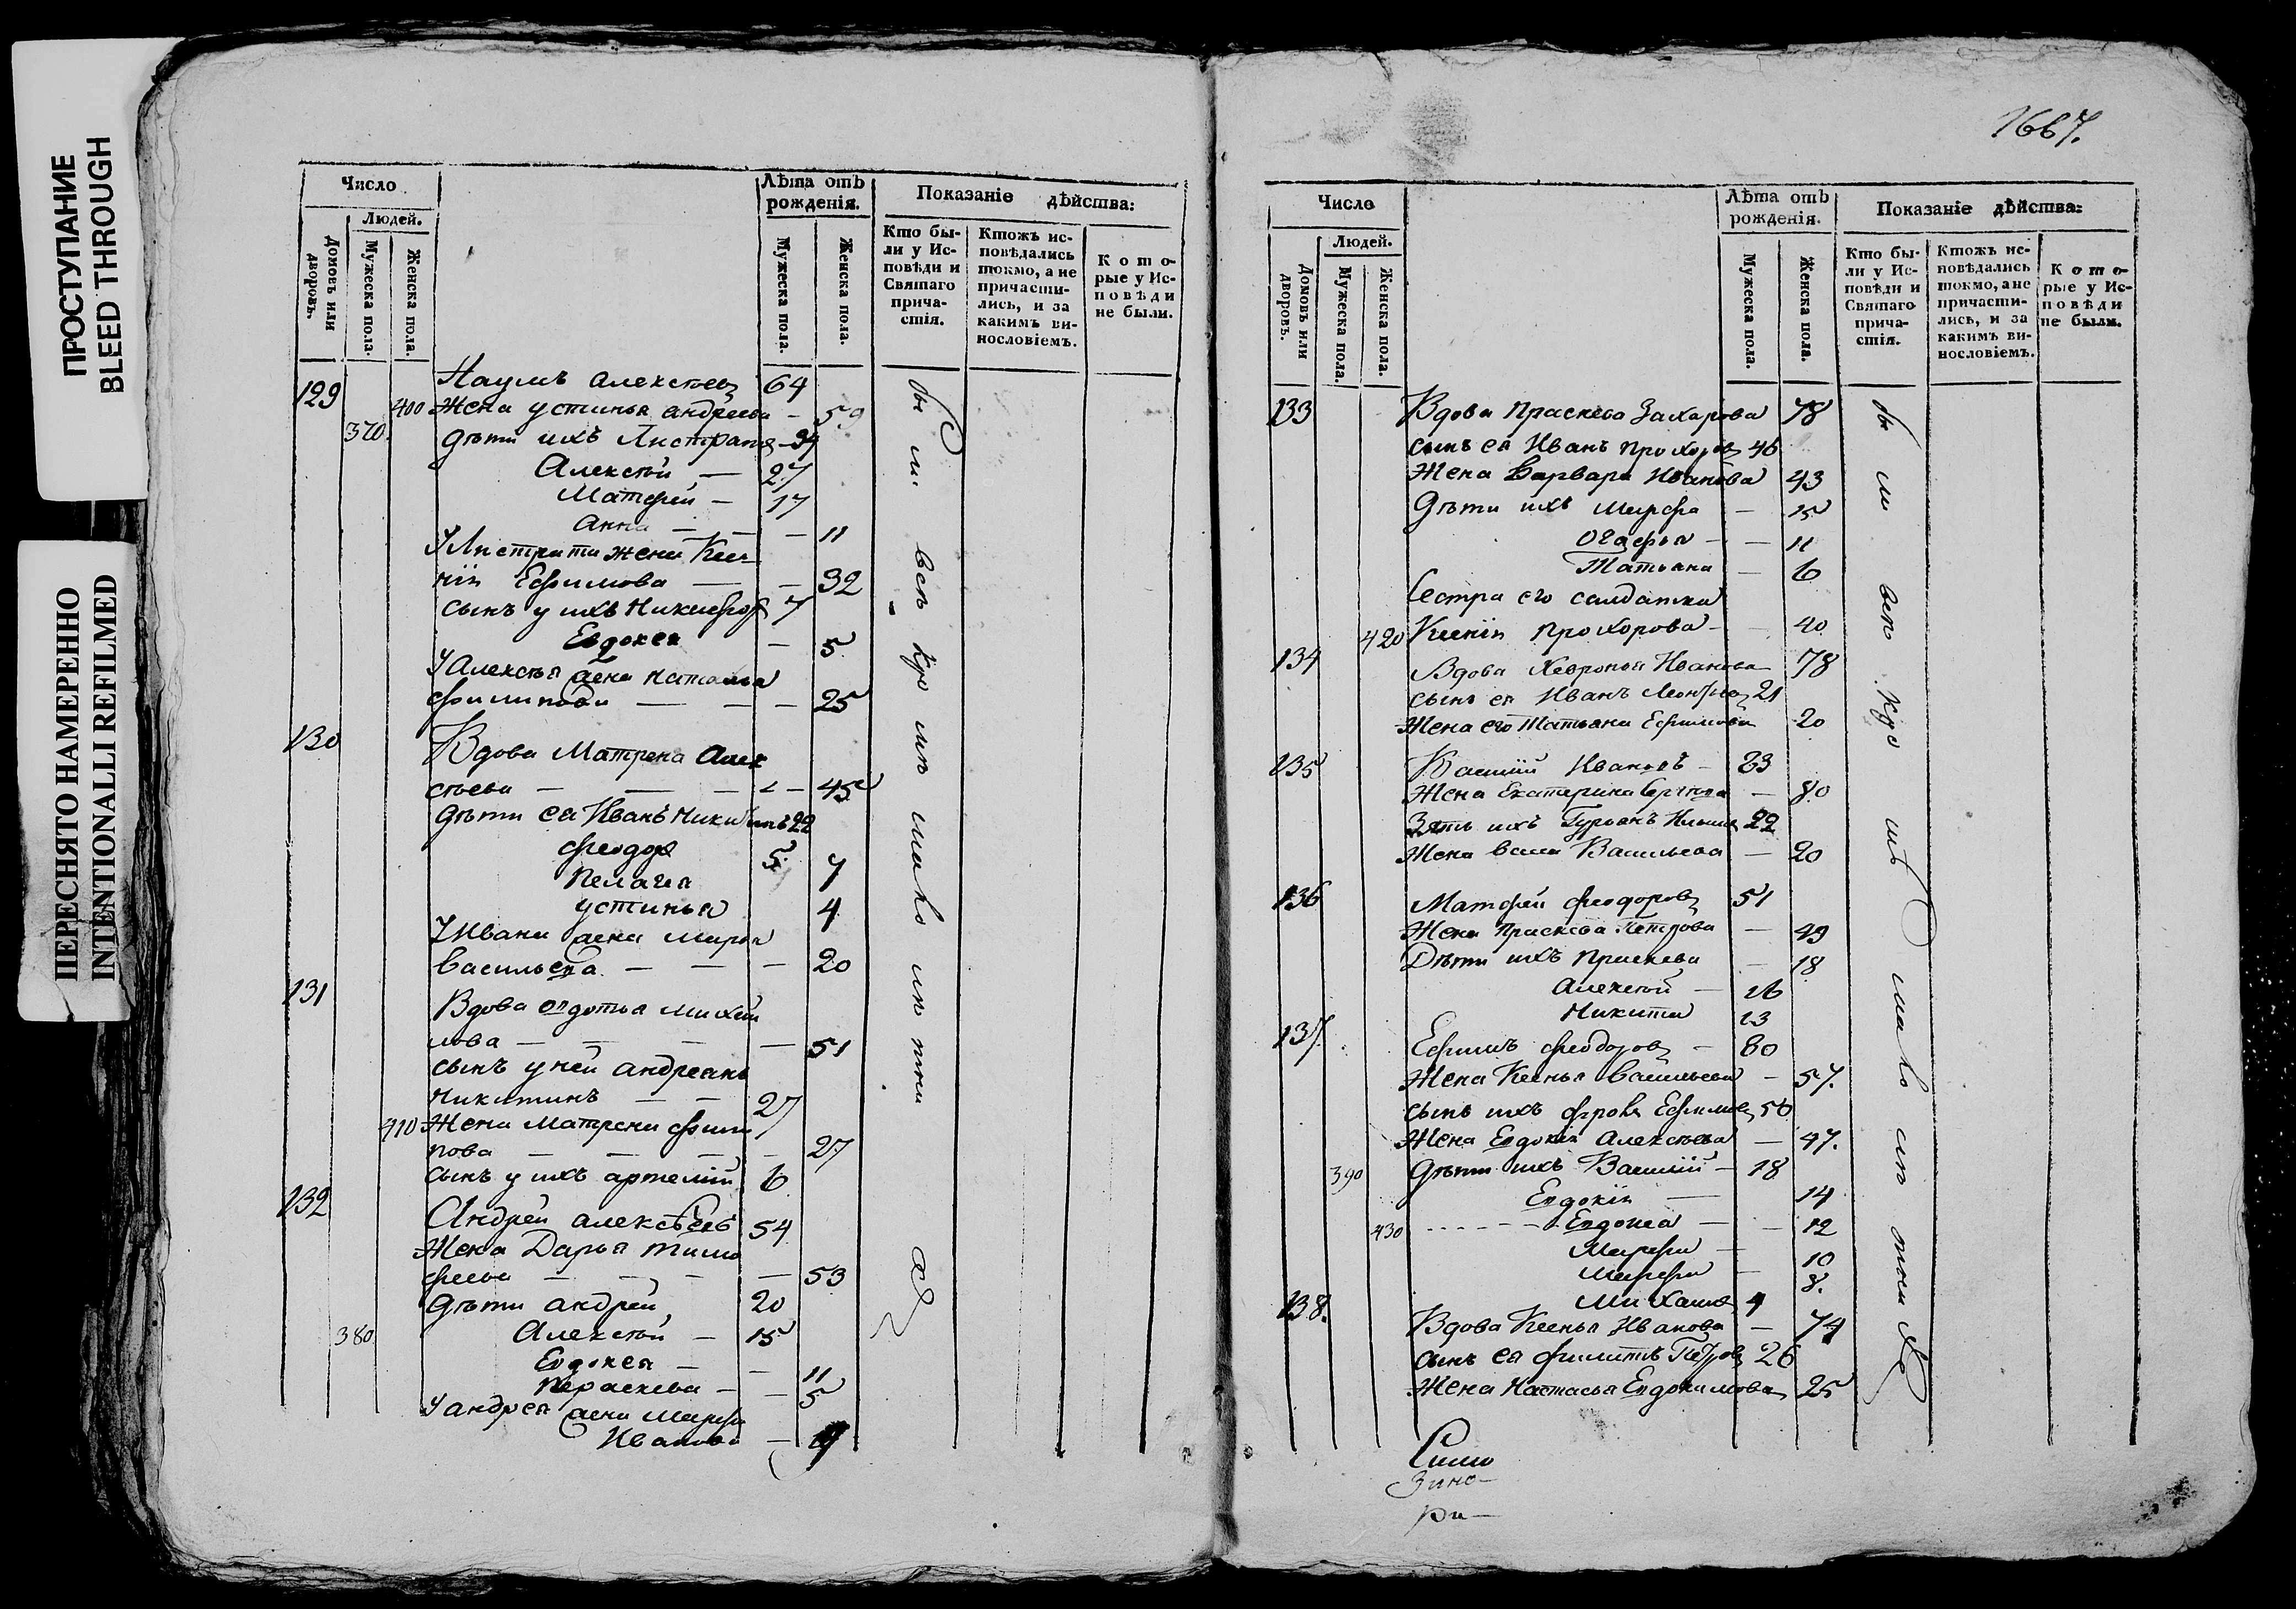 ПРОСТУПАНИЕ
BLEED THROUGH
ПЕРЕСНЯТО НАМЕРЕННО
INTENTIONALLI REFILMED
Число
Людей.
Домовъ или дворовъ.
Мужеска пола.
Женска пола.
Лѣта отъ рожденія.
Мужеска пола.
Женска пола.
Показаніе дѣйства:
Кто бы-
ли у Ис-
повѣди и
Святаго
прича-
стія.
Ктожъ ис-
повѣдались
токмо, а не
причасти-
лись, и за
какимъ ви-
нословіемъ.
К о т о-
рые у Ис-
п о в ѣ д и
не были.
129 Наумъ алексѣевъ 64
400 Жена устинья андреева - 59
370 дѣти ихъ Листратъ - 34
Алексѣй — 27
Матфей — 17
Анна — — — 11
У Листрата жена Ксе-
нія Ефимова — — 32
сынъ у ихъ Никифоръ 7
Евдокея — 5
У Алексѣя жена наталья
филипова — — — 25
130 Вдова Матрена Алек
сѣева — — — — 45
дѣти ея Иванъ Никитинъ 22
феодоръ 5
Пелагея 7
устинья 4
У Ивана жена марья
васильева — — — 20
131 Вдова овдотья михаи
лова — — — — 51
сынъ у ней андреянъ
никитинъ — — 27
410 Жена матрена фили
пова — — — — 27
сынъ у ихъ артемій 6
132 Андрей алексѣевъ 54
Жена Дарья тимо
феева — — — — 53
дѣти андрей 20
380 Алексѣй — 15
Евдокея — — 11
Параскева — — 5
У андрея жена марфа
Иванова —
были всѣ
1667.
Число
Людей.
Домовъ или дворовъ.
Мужеска пола.
Женска пола.
Лѣта отъ рожденія.
Мужеска пола.
Женска пола.
Показаніе дѣйства:
Кто бы-
ли у Ис-
повѣди и
Святаго
прича-
стія.
Ктожъ ис-
повѣдались
токмо, а не
причасти-
лись, и за
какимъ ви-
нословіемъ.
К о т о-
рые у Ис-
п о в ѣ д и
не были.
133 Вдова праскева Захарова 78
сынъ ея Иванъ прохоровъ 46
Жена варвара Иванова 43
дѣти ихъ марфа — 15
огафья — — 11
Татьяна — 6
Сестра его салдатка
420 Ксенія прохорова — 40
134 Вдова Хевронья Иванова 78
сынъ ея Иванъ Леонтьевъ 21
Жена его Татьяна Ефимова 20
135 Василій Ивановъ — 83
Жена Екатерина Сергѣева — 80
Зять ихъ Гурьянъ Ильинъ 22
Жена Васильева — 20
136 Матфей феодоровъ 51
Жена праскева Петрова — 49
Дѣти ихъ праскева — 18
Алексѣй — 16
Никита 13
137. Ефимъ феодоровъ — 80
Жена Ксенья васильева — 57.
сынъ ихъ фролъ Ефимовъ 50
Жена Евдокія Алексѣева — 47.
390 дѣти ихъ Василій — 18
Евдокія — 14
430 Евдокea — — 12
Марфа — 10
Марфа — 8.
Михаилъ 4
138. Вдова Ксенья Иванова — 74
сынъ ея филипъ Петровъ 26
Жена Настасья Евдокимова 25
были всѣ